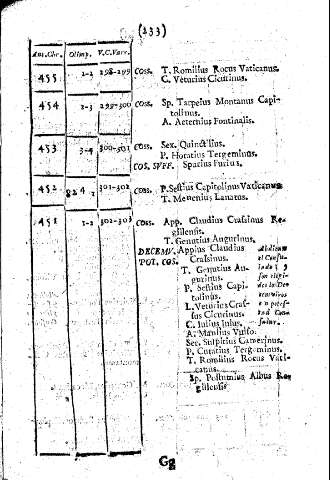 (233)
Ant. Chr. Olimp. V.C. Varr.
455 1-2 298-299 COSS. T. Romilius Rocus Vaticanus.
C. Veturius Cicurinus.
454 2-3 299-300 COSS. Sp. Tarpeius Montanus Capi-
tolinus.
A. Aeternius Fontinalis.
453 3-4 300-301 COSS. Sex. Quinctilius.
P. Horatius Tergeminus.
COS. SUFF. Spurius Furius.
452 301-302 COSS. P. Sestius Capitolinus Vaticanus
T. Menenius Lanatus.
451 1-2 302-303 COSS. App. Claudius Crassinus Re-
gillensis.
T. Genutius Augurinus.
DECEMV. Appius Claudius
POT. COS. Crassinus.
T. Genutius Au-
gurinus.
P. Sestius Capi-
tolinus.
L. Veturius Cras-
sus Cicurinus.
C. Iulius Iulus.
A. Manlius Vulso.
Ser. Sulpitius Camerinus.
P. Curatius Tergeminus.
T. Romilius Rocus Vati-
canus.
Sp. Postumius Albus Re-
gillensis
Gg